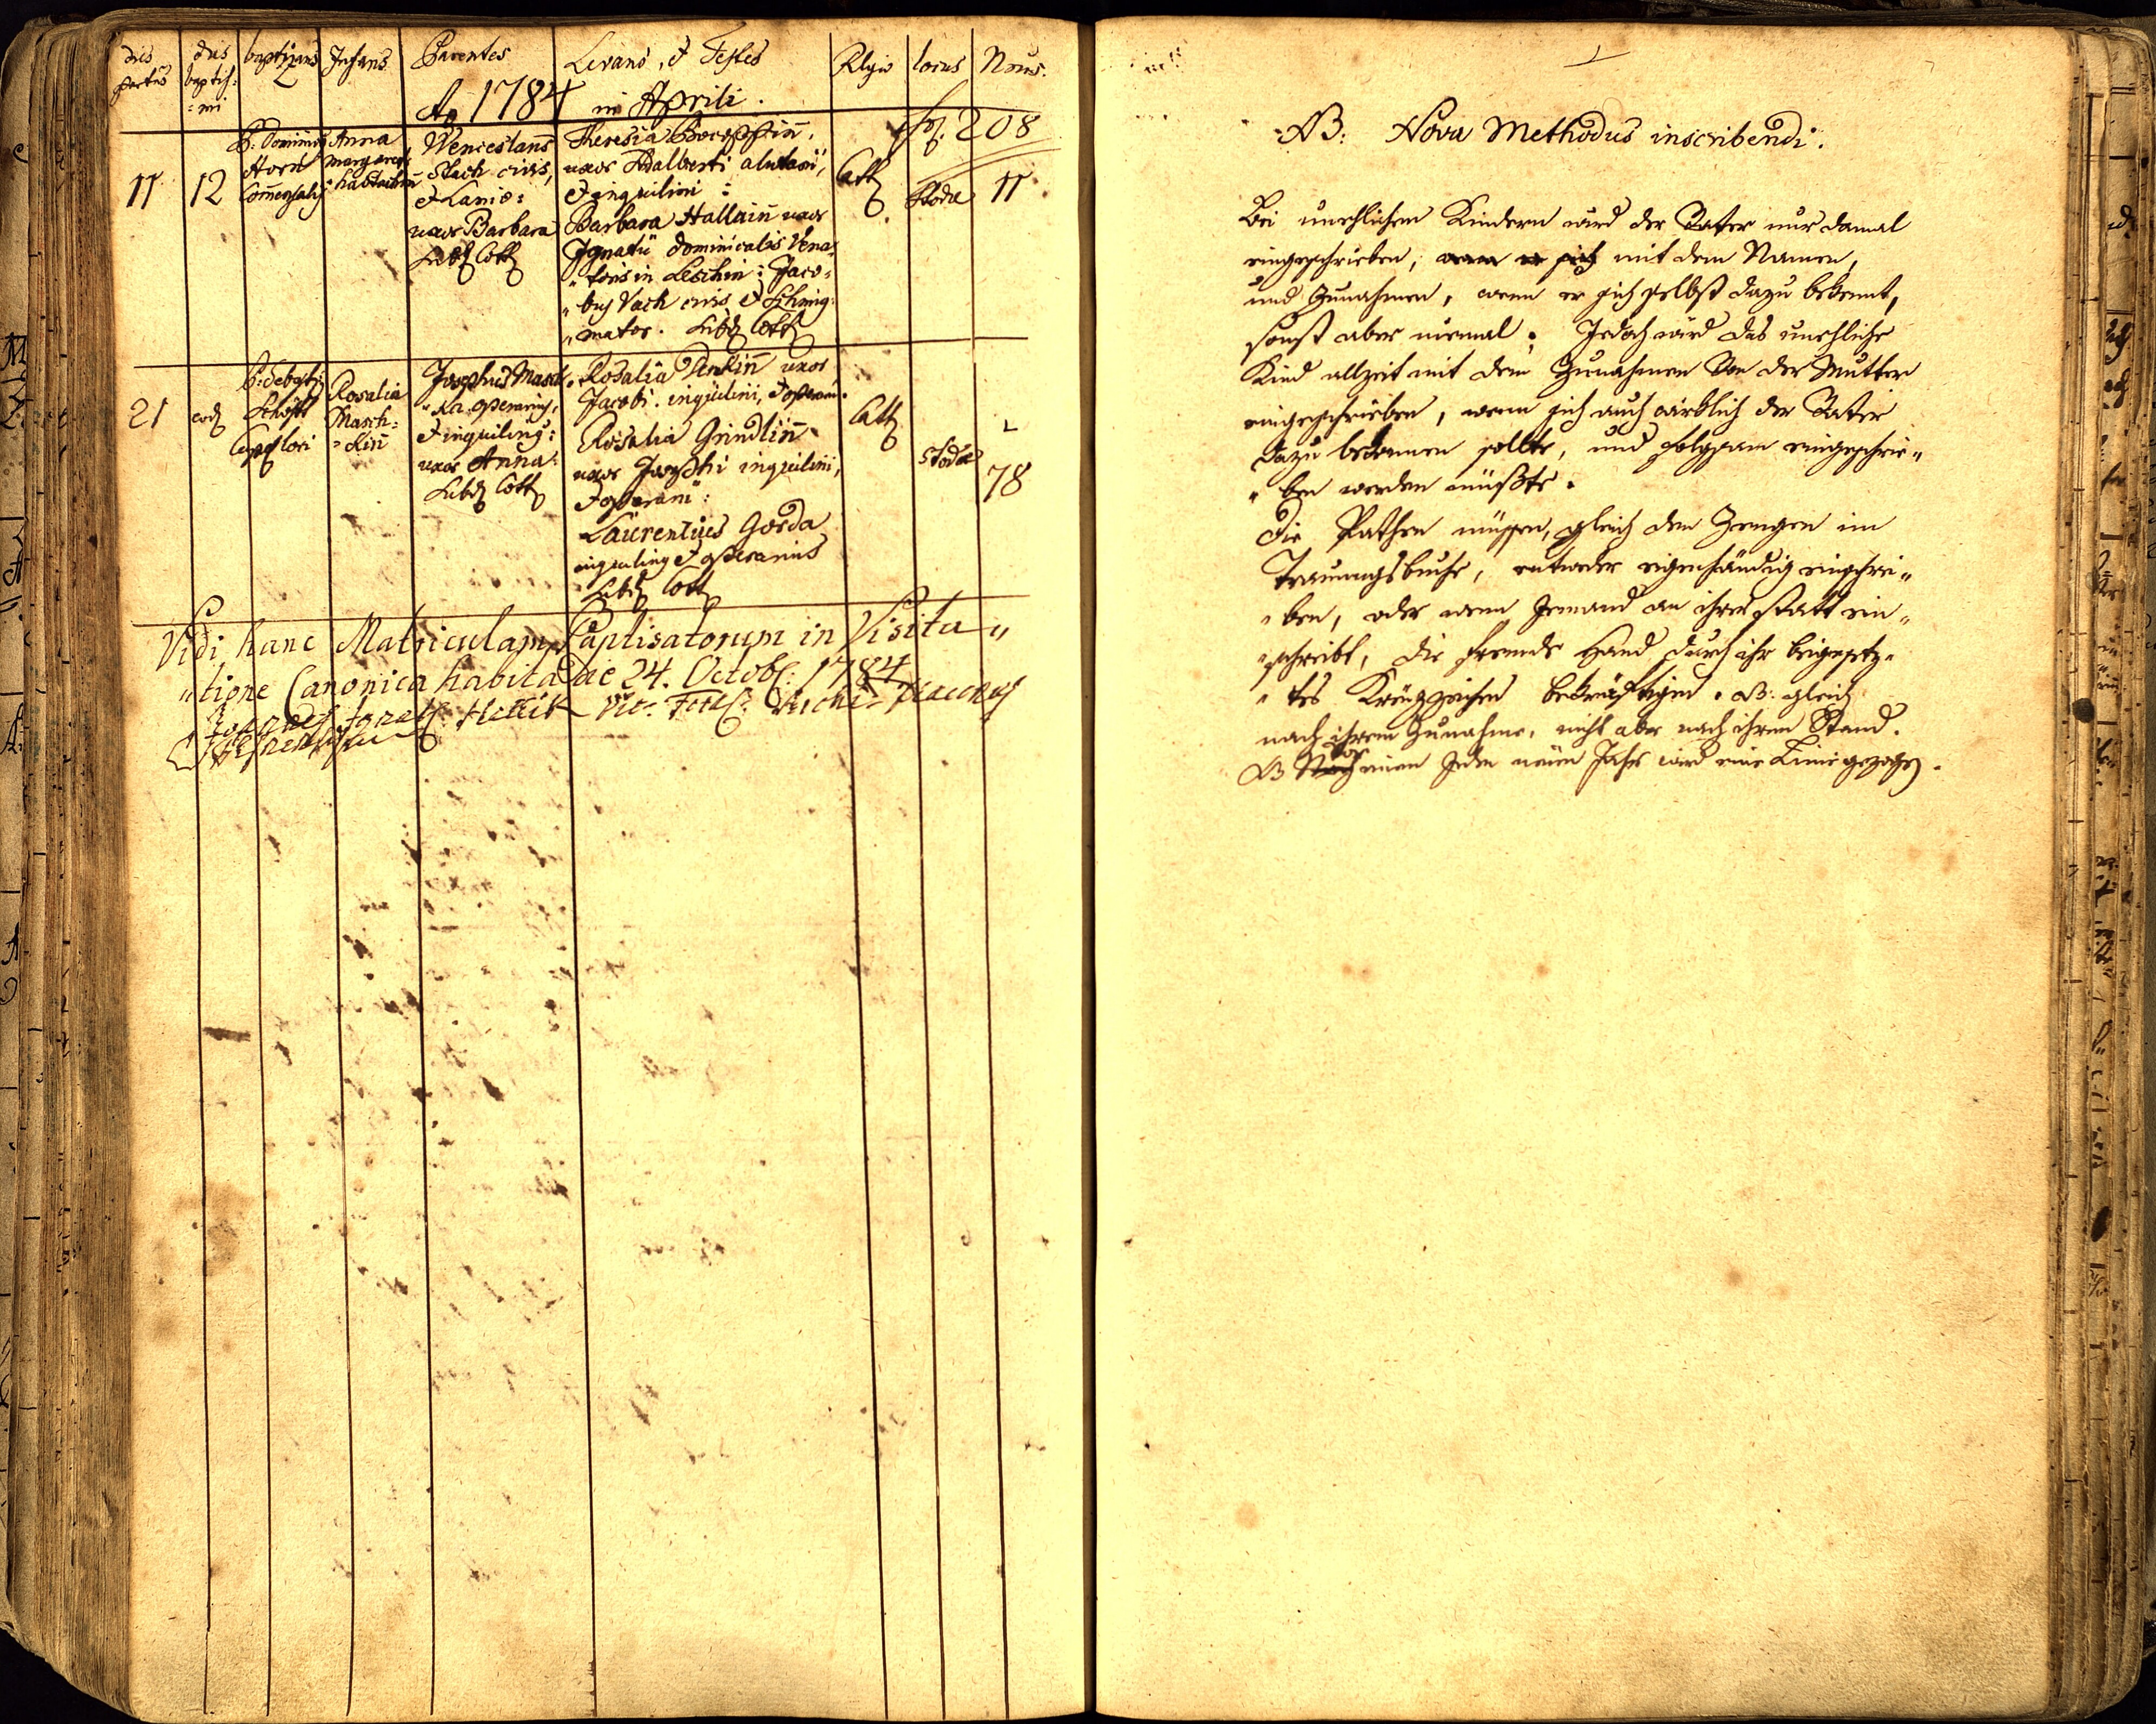 dies partus | dies baptis: =mi | baptizans | Infans | Parentes | Levans, et Testes | Religio | locus | Nrus.
Ao 1784 in Aprili.
fol. 208
11 | 12 | P. Dominic9 Horn | Anna Margareta | Wenceslaus
Stach civis,
et Lanio:
uxor Barbara
Theresia
uxor Adalberti alutarii,
et inquilini:
Barbara Hallain uxor
Ignatii dominicalis Vena=
"toris in Leschin: Jaco=
"bus Vach civis et
Cath | Stodae | 11
21 | eod | Rosalia
Masch=
=kin
Josephus Masch
"ka operarius,
et inquilinus:
uxor Anna:
Rosalia uxor
Jacobi inquilini, et operarii.
Rosalia Grindlin
uxor Josephi inquilini,
et operarii:
Laurentius Gorda
inquilinus et operarius
Cath | Stodae | 78
Vidi hanc Matriculam Baptisatorum in Visita"
"tione Canonica habita die 24. Octob: 1784
NB: Nova Methodus inscribendi.
Bei unehlichen Kindern wird der Vater nur damal
eingeschrieben, wenn er sich mit dem Namen,
und Zunahmen, wenn er sich selbst dazu bekennt,
sonst aber niemal. Jedoch wird das unehliche
Kind allzeit mit dem Zunahmen von der Mutter
eingeschrieben, wenn sich auch wirklich der Vater
dazu bekennen sollte, und folgsam eingeschrie"
"ben werden müßte.
Die Pathen müssen, gleich den Zeugen im
Trauungsbuche, entweder eigenhändig einschrei"
"ben, oder wenn Jemand an ihrer statt ein"
"schreibt, die fremde Hand durch ihr beigesetz"
"tes Kreuzzeichen bekräftigen. NB. gleich
nach ihrem Zunahme, nicht aber nach ihrem Stand.
NB Nach vor einem jeden neuen Jahr wird eine Linie gezogen.